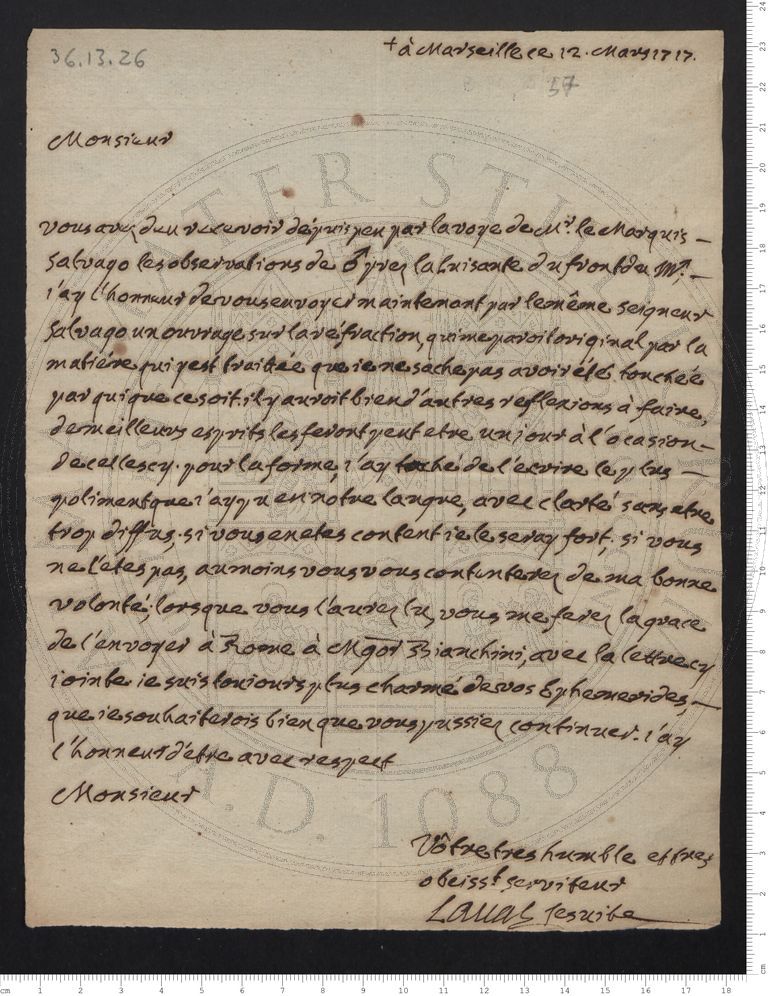 36.13.26
+ à Marseille ce 12. Mars 1717.
57
Monsieur
vous avez deu recevoir depuis peu par la voye de Mr. le Marquis
Salvago les observations de ♂ prez la luisante du front du ♏;
i'ay l'honneur de vous envoyer maintenant par le même seigneur
Salvago un ouvrage sur la réfraction, qui me paroit original par la
matiére qui y est traittée que ie ne sache pas avoir été touchée
par qui que ce soit. il y auroit bien d'autres reflexions à faire,
de meilleurs esprits les feront peut etre un jour à l'ocasion
de celles cy. pour la forme, i'ay taché de l'écrire le plus
poliment que i'ay pu en notre langue, avec clarté sans etre
trop diffus. si vous en etes content ie le seray fort; si vous
ne l'étes pas, au moins vous vous contenterez de ma bonne
volonté; lorsque vous l'aurez lu, vous me ferez la grace
de l'envoyer à Rome à Mgor Bianchini, avec la lettre cy
iointe ie suis toujours plus charmé de vos Ephemerides,
que ie souhaiterois bien que vous pussiez continuer. i'ay
l'honneur d'étre avec respect
Monsieur
Vôtre tres humble et tres
obeisst. serviteur
Laval Jesuite
ALMA MATER STUDIORUM
A.D. 1088